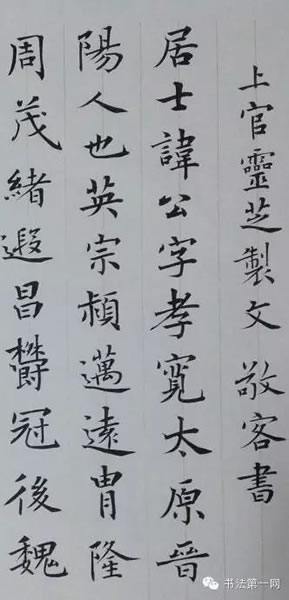 上官靈芝製文 敬客書
居士諱公字孝寬太原晉
陽人也英宗頛邁遠胄隆
周茂緒遐昌欝冠後魏
书法第一网